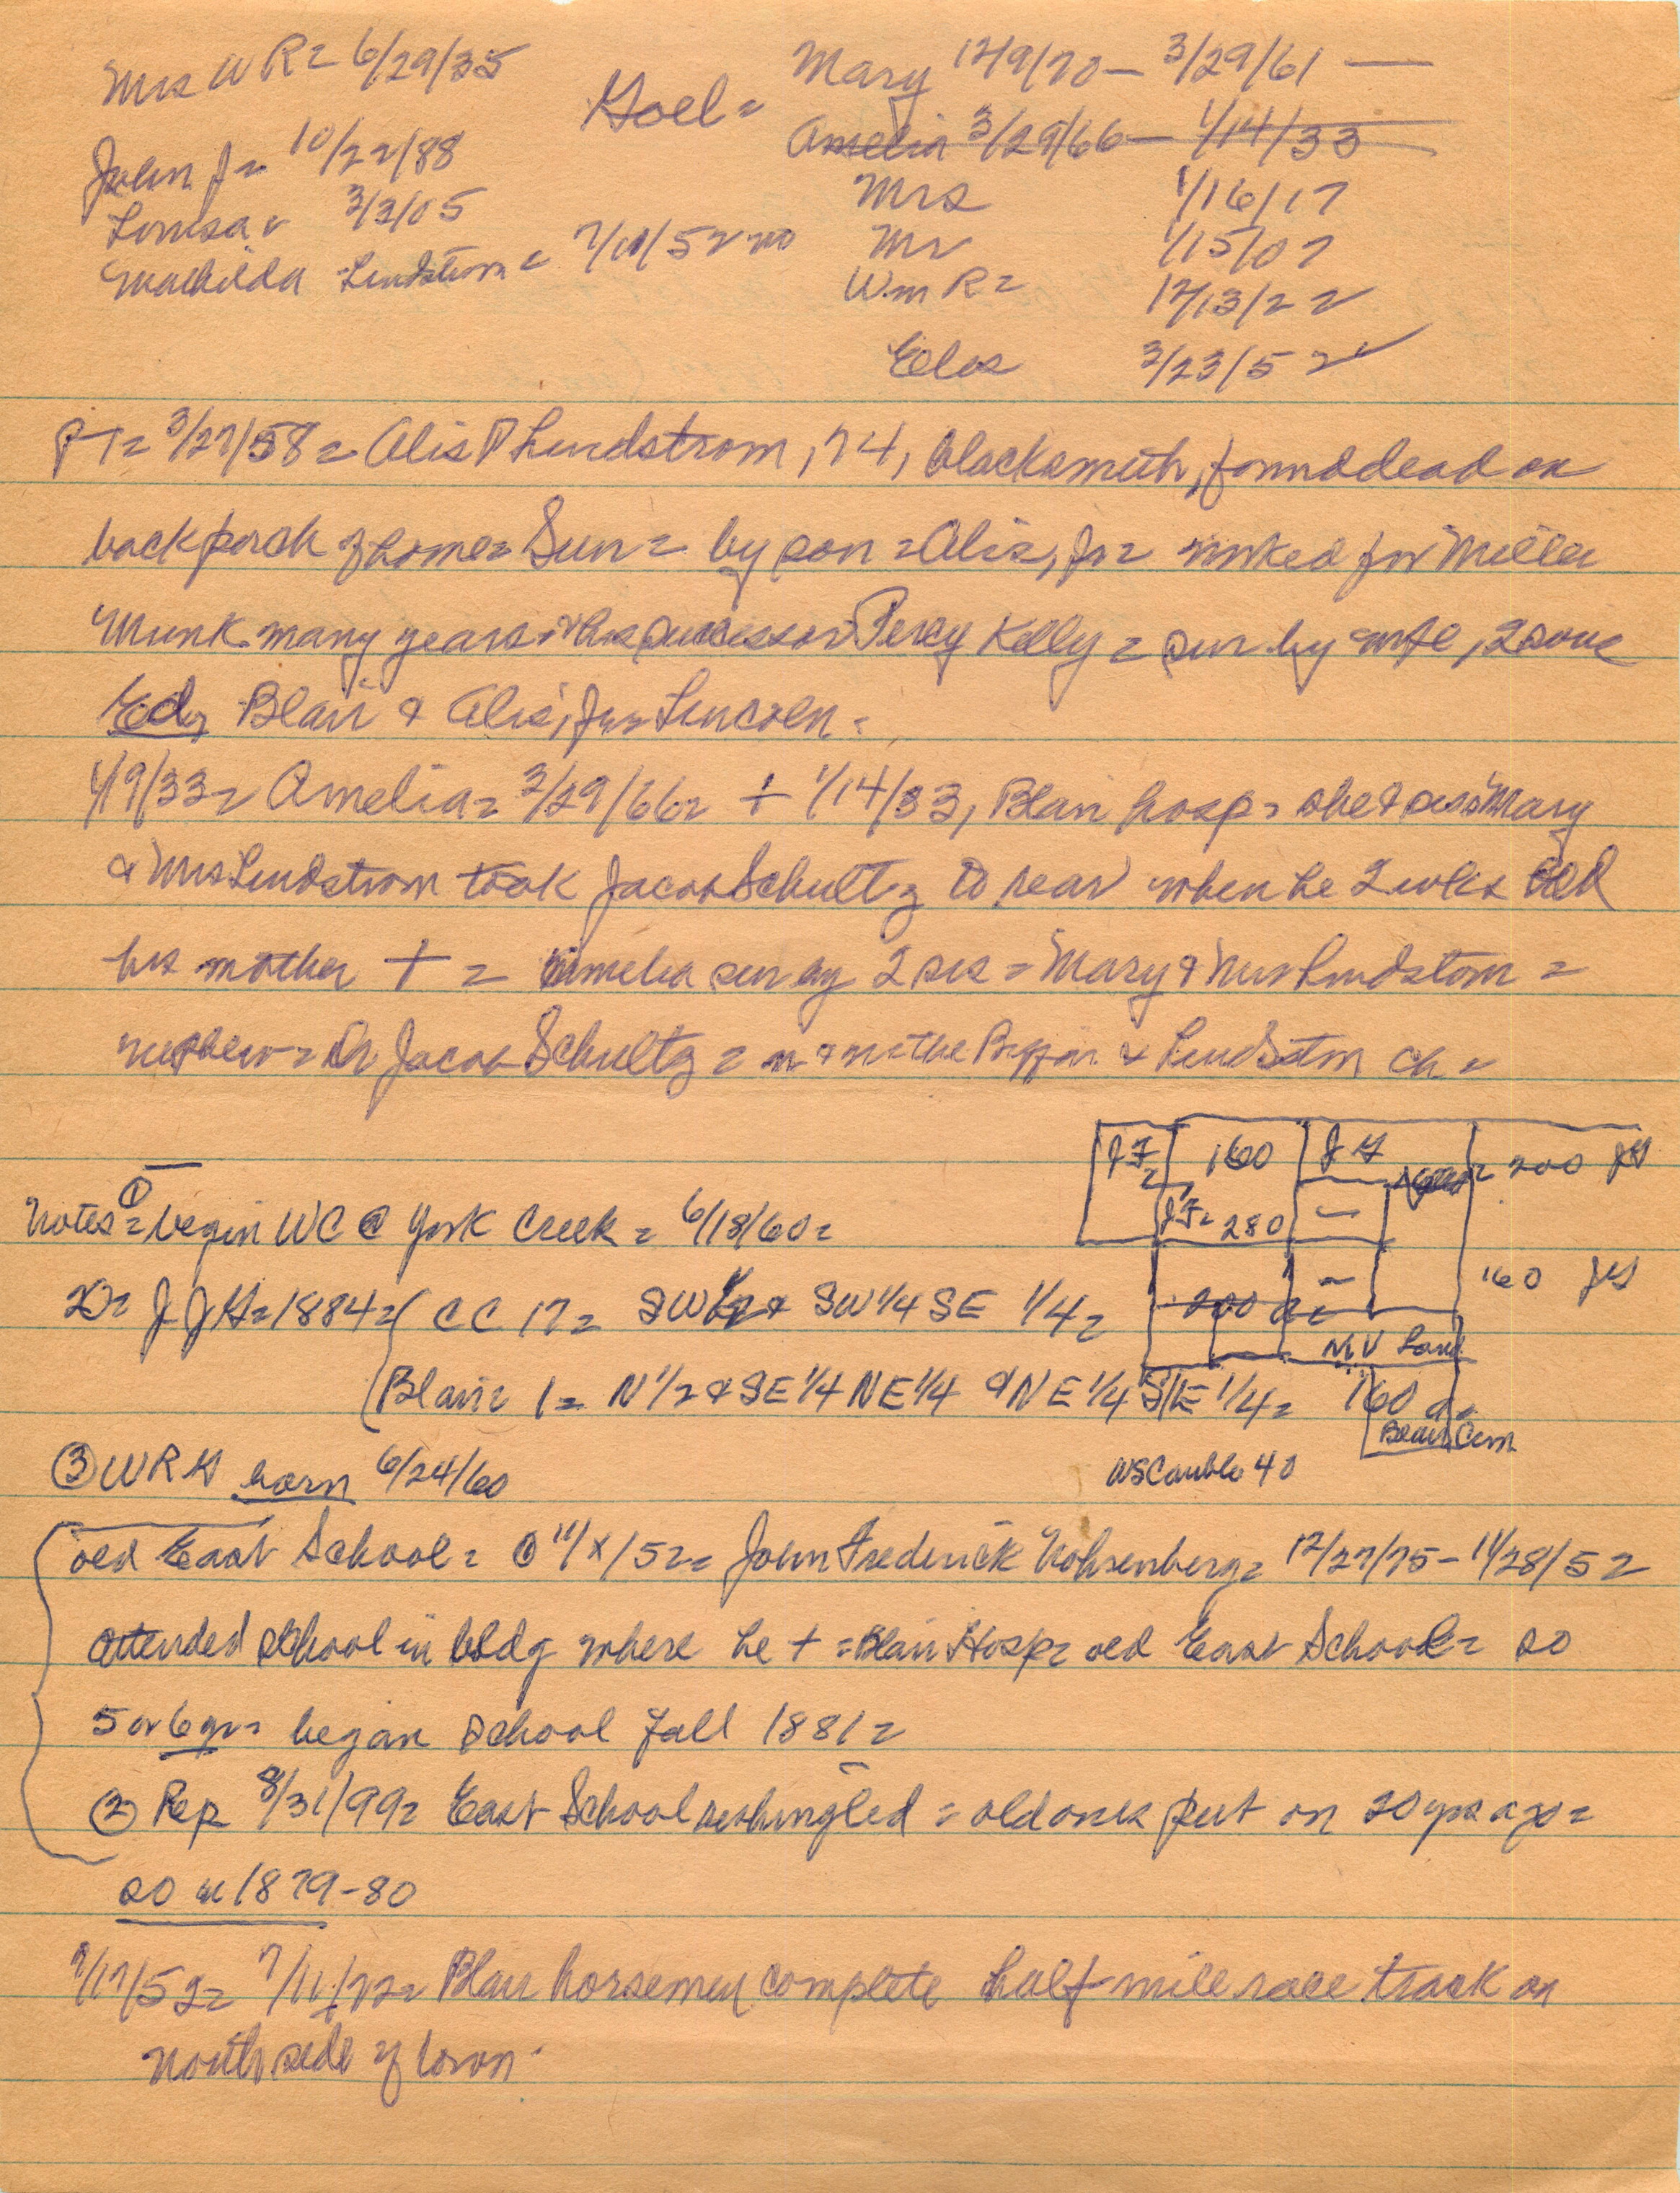 Mrs W R = 6/29/35
Goel =
Mary 12/9/70 — 3/29/61 —
John J = 10/22/88
Amelia 3/29/66 — 1/14/33
Louisa = 3/3/05
Mrs 1/16/17
Mathilda Lindstrom = 7/11/52
Mr 1/15/07
Wm R = 12/13/22
Elis 3/23/52
PT = 3/27/58 = Alis P Lindstrom, 74, blacksmith, found dead on
back porch of home = Sun = by son = Alis, Jr = worked for Miller
Munk many years = & his successor Percy Kelly = sur by wife, 2 sons
Ed, Blair & Alis, Jr = Lincoln =
1/19/33 = Amelia = 3/29/66 = + 1/14/33, Blair hosp = she & sis Mary
& Mrs Lindstrom took Jacob Schultz to rear when he 2 wks old
his mother + = Amelia sur by 2 sis = Mary & Mrs Lindstrom =
nephew = Dr Jacob Schultz = & Lindstrom ch =
JF = 160 JG = 200 JG
JF = 280 —
160 JG
—
200 a =
NW Land
Notes = ① begin WC @ York Creek = 6/18/60 =
2) = J J G = 1884 = ( CC 17 = SW 1/4 & SW 1/4 SE 1/4 =
(Blair = 1 = N 1/2 & SE 1/4 NE 1/4 & NE 1/4 SE 1/4 = 160 a =
Blair Cem
WS Cauble 40
③ W R G born 6/24/60
old East School = ① 11/x/52 = John Frederick Rohsenberg = 12/27/75 - 11/28/52
attended school in bldg where he + = Blair Hosp = old East School = so
5 or 6 yr = began school fall 1881 =
② Rep 8/31/99 = East School reshingled = old ones put on 20 yrs ago =
so in 1879-80
7/17/52 = 7/11/72 = Blair horsemen complete half-mile race track on
north side of town.